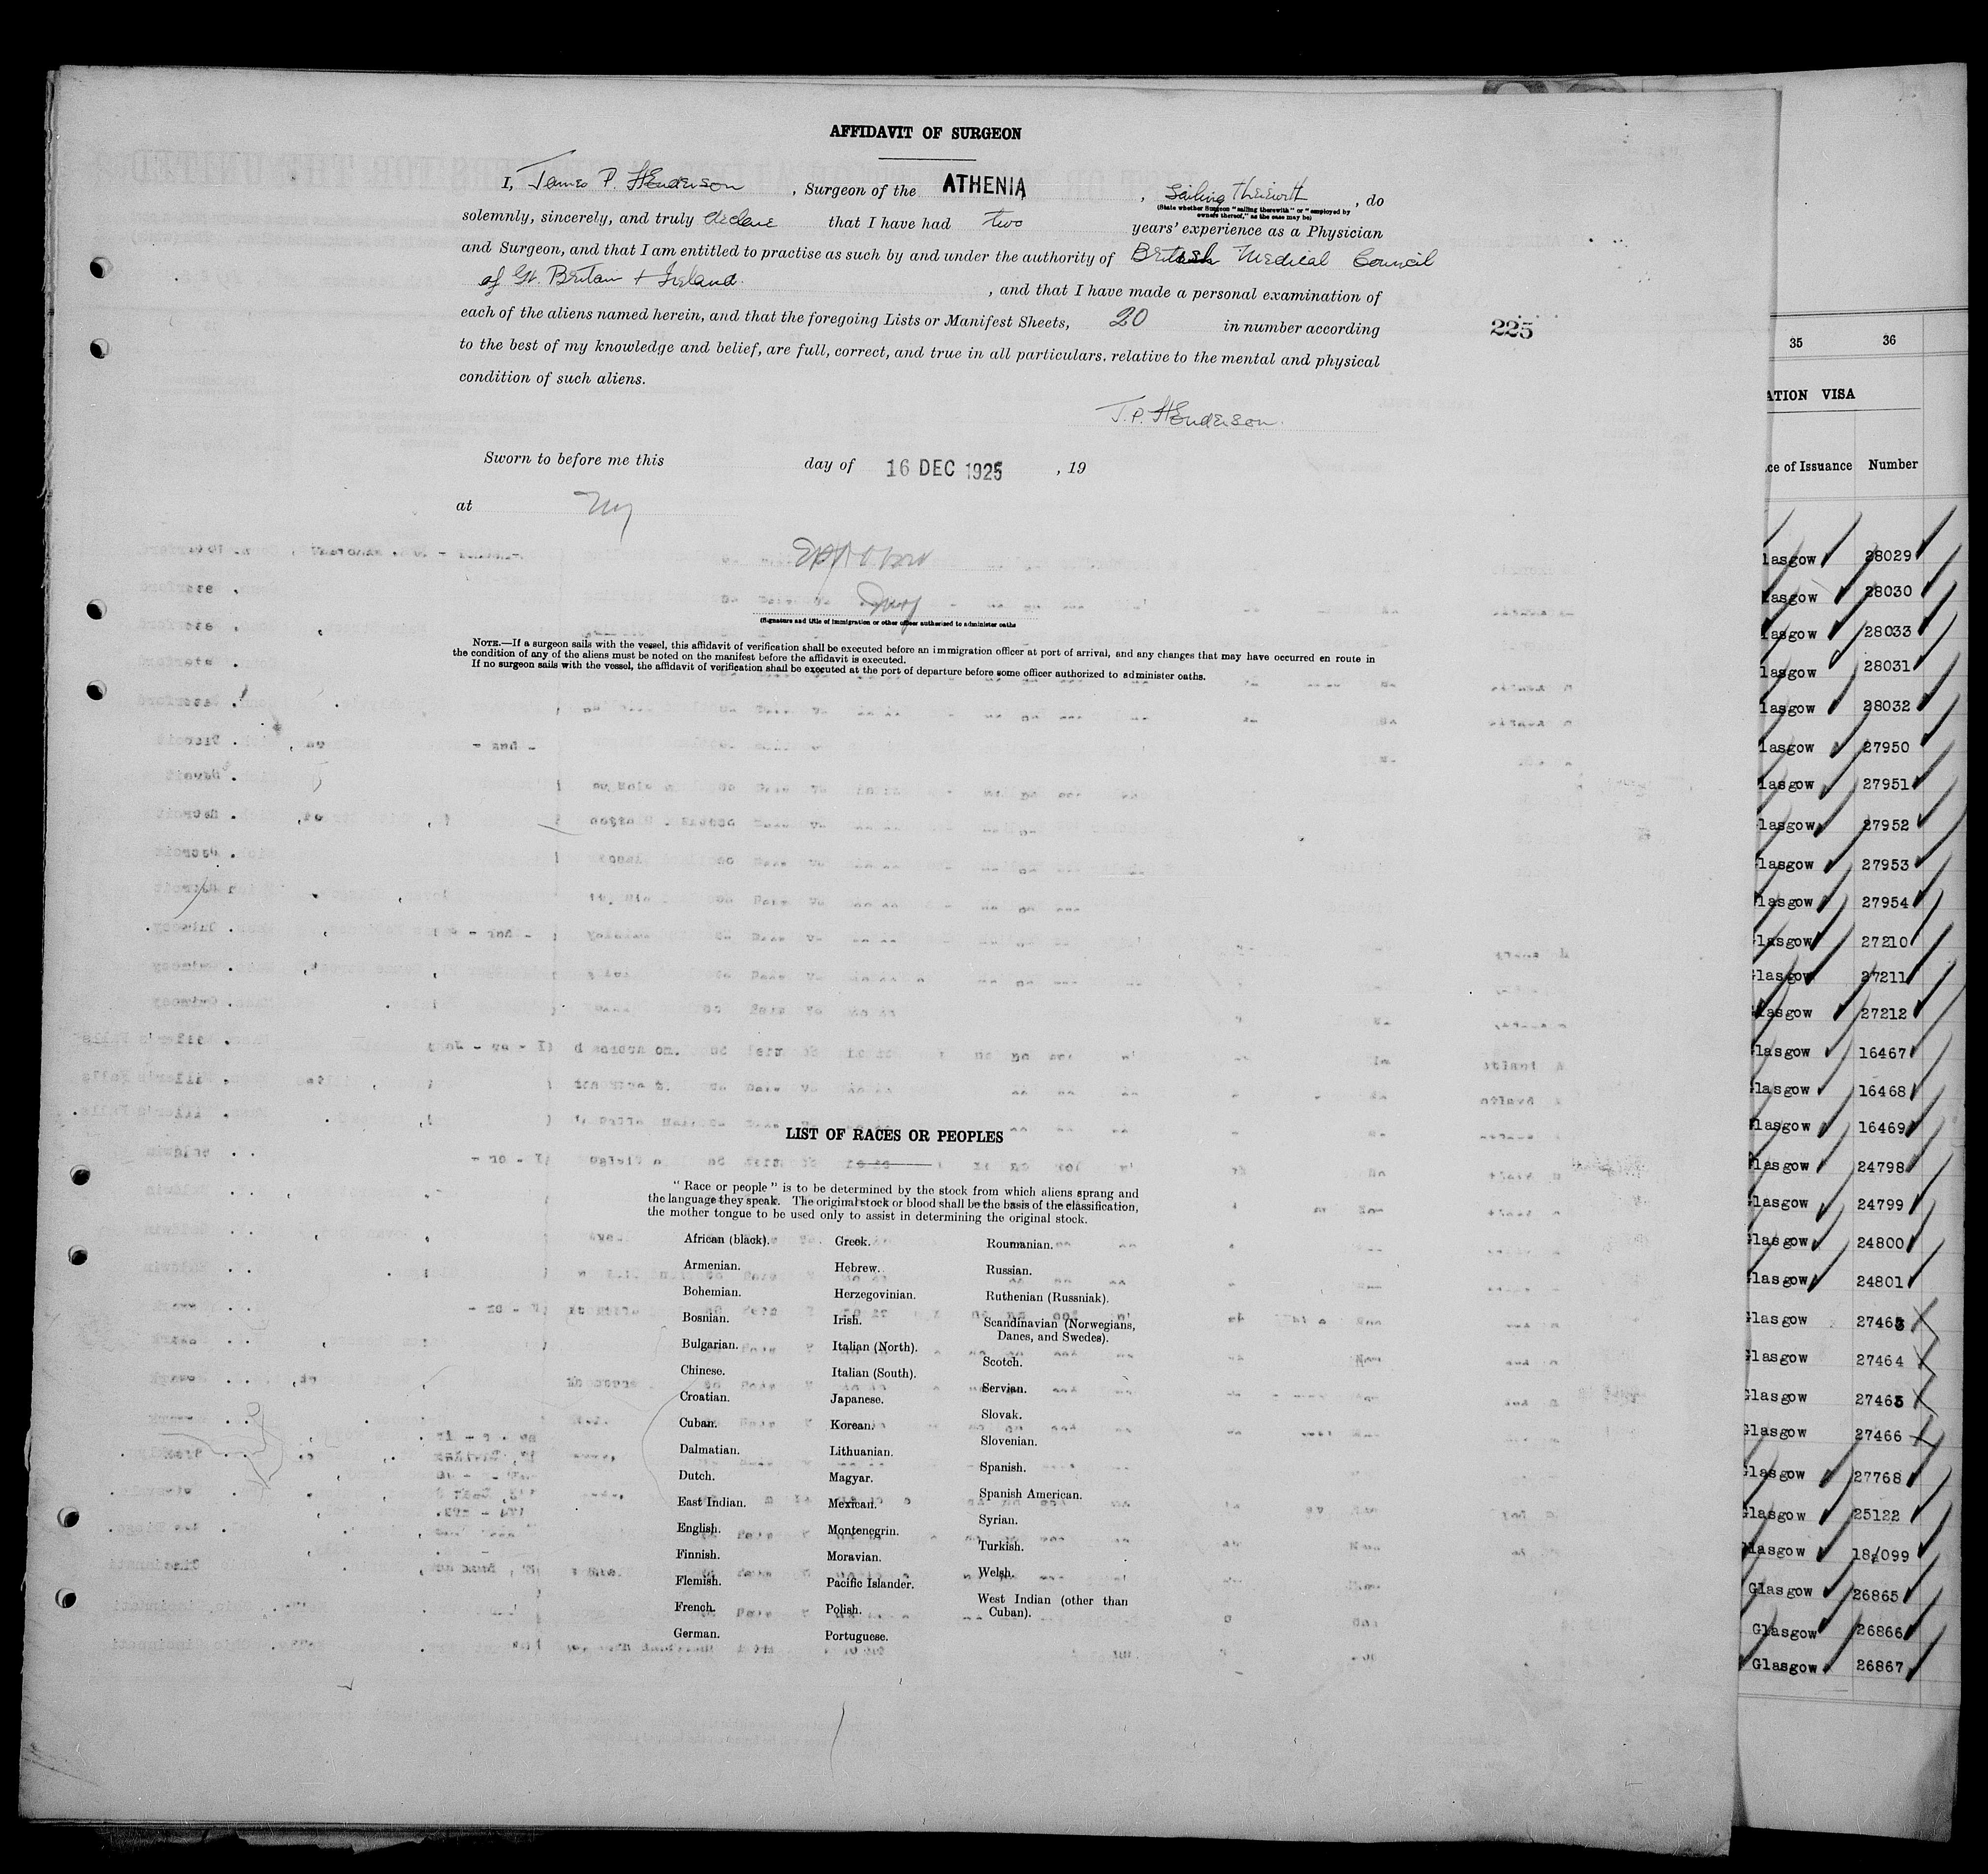 AFFIDAVIT OF SURGEON
I, James P. Henderson , Surgeon of the ATHENIA , Sailing therewith , do
(State whether Surgeon "sailing therewith" or "employed by
owners thereof," as the case may be)
solemnly, sincerely, and truly declare that I have had two years' experience as a Physician
and Surgeon, and that I am entitled to practise as such by and under the authority of British Medical Council
of Gt. Britain + Ireland. , and that I have made a personal examination of
each of the aliens named herein, and that the foregoing Lists or Manifest Sheets, 20 in number according
225
to the best of my knowledge and belief, are full, correct, and true in all particulars. relative to the mental and physical
condition of such aliens.
J. P. Henderson.
Sworn to before me this day of 16 DEC 1925 , 19
at NY
(Signature and title of immigration or other officer authorized to administer oaths
NOTE.—If a surgeon sails with the vessel, this affidavit of verification shall be executed before an immigration officer at port of arrival, and any changes that may have occurred en route in
the condition of any of the aliens must be noted on the manifest before the affidavit is executed.
If no surgeon sails with the vessel, the affidavit of verification shall be executed at the port of departure before some officer authorized to administer oaths.
LIST OF RACES OR PEOPLES
"Race or people" is to be determined by the stock from which aliens sprang and
the language they speak. The original stock or blood shall be the basis of the classification,
the mother tongue to be used only to assist in determining the original stock.
African (black).
Armenian.
Bohemian.
Bosnian.
Bulgarian.
Chinese.
Croatian.
Cuban.
Dalmatian.
Dutch.
East Indian.
English.
Finnish.
Flemish.
French.
German.
Greek.
Hebrew.
Herzegovinian.
Irish.
Italian (North).
Italian (South).
Japanese.
Korean.
Lithuanian.
Magyar.
Mexican.
Montenegrin.
Moravian.
Pacific Islander.
Polish.
Portuguese.
Roumanian.
Russian.
Ruthenian (Russniak).
Scandinavian (Norwegians,
Danes, and Swedes).
Scotch.
Servian.
Slovak.
Slovenian.
Spanish.
Spanish American.
Syrian.
Turkish.
Welsh.
West Indian (other than
Cuban).
35 36
ATION VISA
ce of Issuance Number
lasgow 28029
lasgow 28030
lasgow 28033
lasgow 28031
lasgow 28032
lasgow 27950
lasgow 27951
lasgow 27952
lasgow 27953
lasgow 27954
lasgow 27210
Glasgow 27211
Glasgow 27212
Glasgow 16467
Glasgow 16468
Glasgow 16469
Glasgow 24798
Glasgow 24799
Glasgow 24800
Glasgow 24801
Glasgow
Glasgow 27464
Glasgow
Glasgow 27466
Glasgow 27768
Glasgow 25122
Glasgow 18/099
Glasgow 26865
Glasgow 26866
Glasgow 26867